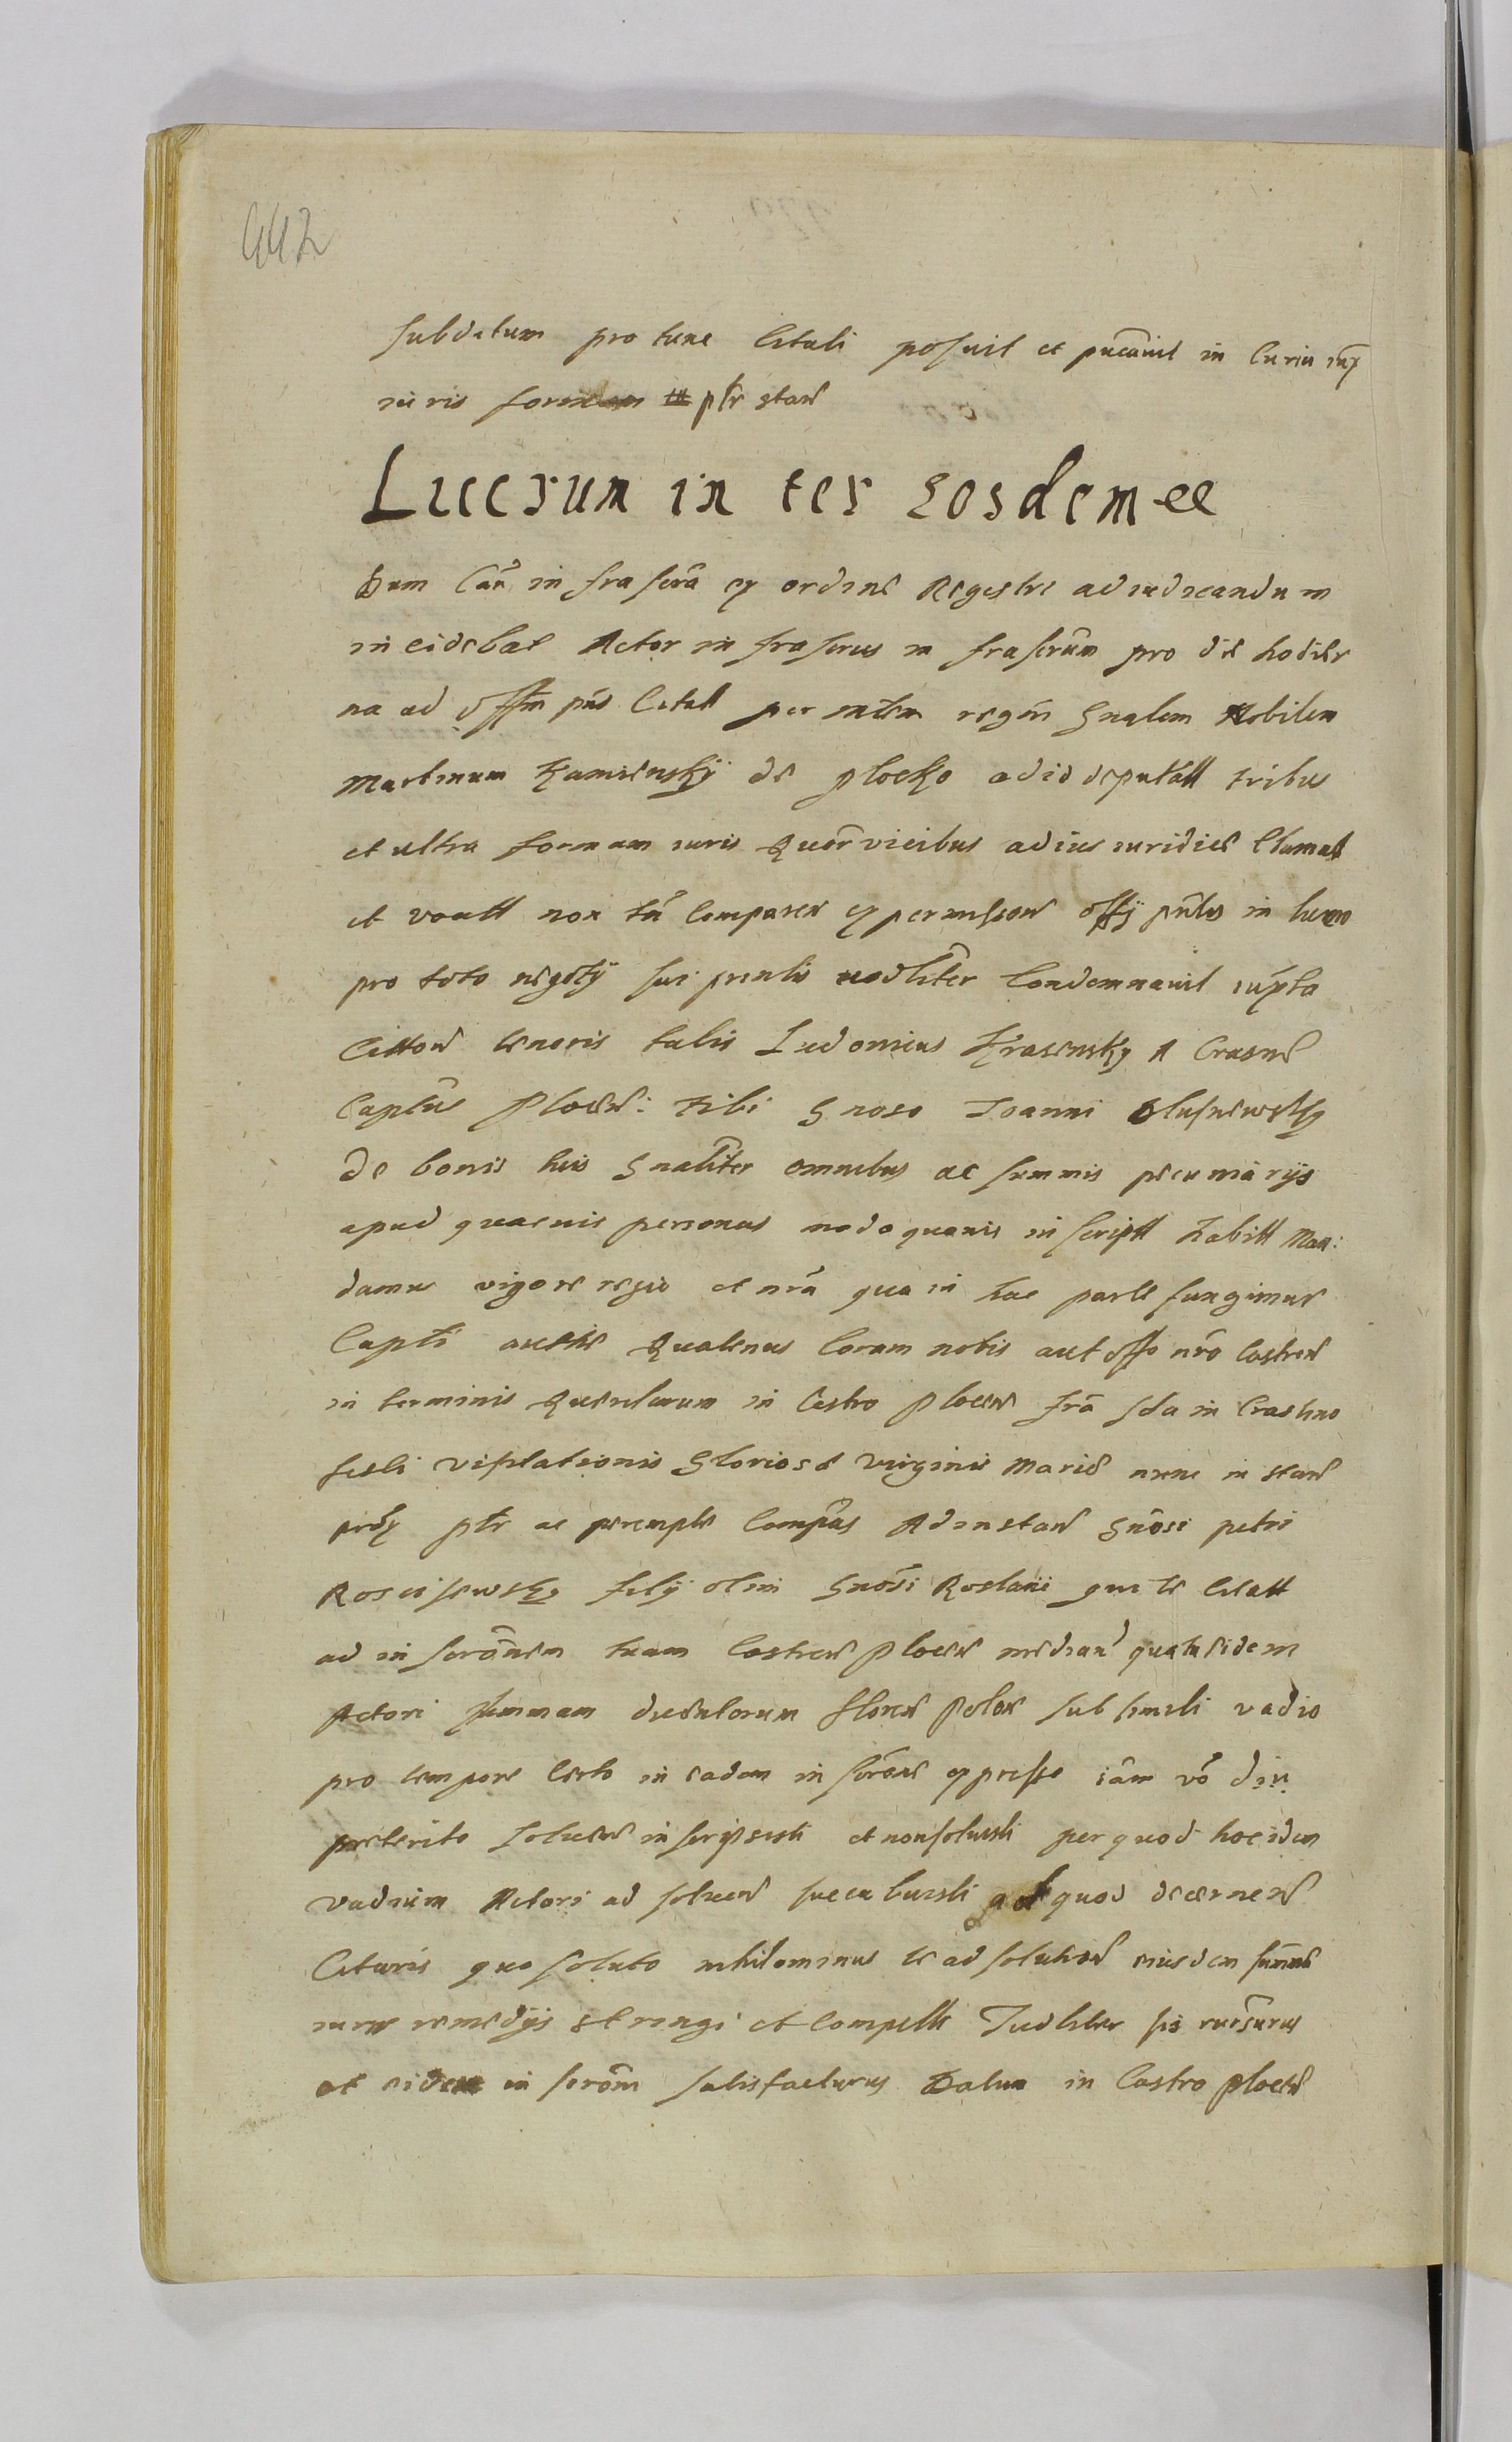 442
subditum pro tunc Citati posuit et pncavit in Curia iux
iuris formam ptr stan
Lucrum inter eosdem ee
Dum Cau infrascra ex ordine Regestri adiudicandum
incidebat Actor infrascrus infrascrum pro die hodier
na ad offm pns Citatt per mtrm regm gnalem Nobilem
Martinum Kamiensky de plocko ad id deputatt tribus
et ultra formam iuris quor vicibus ad ius iuridice Clamatt
et vocatt non tn Comparen ex permissione offy pntis in lucro
pro toto negoty sui prentis iudliter Condemnavit iuxta
Citton tenoris talis Ludovicus Krasensky A Crasne
Captus plocen: tibi Gnoso Joanni
de bonis tuis gnaliter omnibus ac summis pecuniarijs
apud quasvis personas modoquovis inscriptt habitt Man:
damus vigore regia et nra qua in hac parte fungimur
Capti autte quatenus Coram nobis aut offo nro Castren
in terminis querelarum in Castro plocen fra sda in Crastino
festi visitationis Gloriose virginis Marie nunc instan
prox ptr ac perempte Compas Ad instan Gnosi petri
Rosciszewsky fily olim Gnosi Roslani qui te citatt
ad inscronem tuam Castren plocen median qua tu eidem
Actori summam ducentorum floren polon sub simili vadio
pro tempore Certo in eadem inscrone expresso iam vo diu
preterito solvere inscripsisti et non solvisti per quod hoc idem
vadium Actori ad solven succubuisti ad quod decernen
Citaris quo soluto nihilominus te ad solution eiusdem summe
iuris remedijs stringi et compelli Judliter sis
et eidem inscrom satisfacturus Datum in Castro plocen